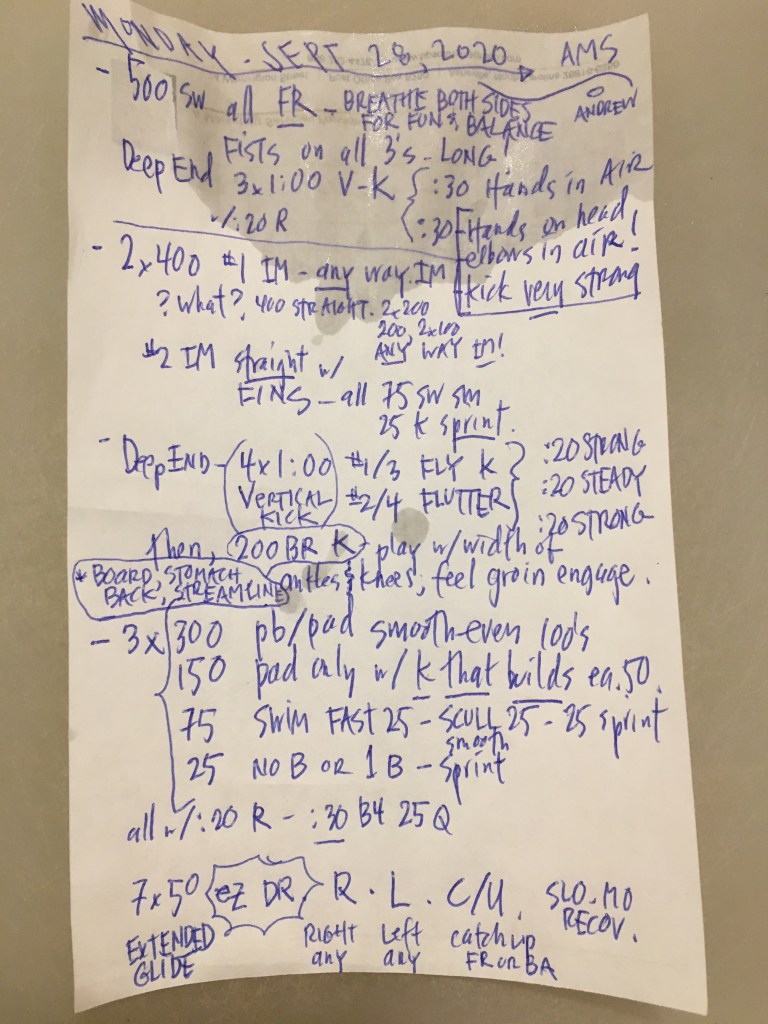 MONDAY - SEPT 28, 2020 AMS
ANDREW
- 500 SW all FR - BREATHE BOTH SIDES
FOR FUN & BALANCE
FISTS on all 3's - LONG
Deep End 3x1:00 V-K { :30 Hands in AIR
w/:20 R { :30 Hands on head
elbows in air!
kick very strong
- 2x400 #1 IM - any way IM
? What? 400 STRAIGHT. 2x200
200, 2x100
ANY WAY IM!
#2 IM straight w/
FINS - all 75 SW sm
25 K sprint.
- Deep END - 4x1:00 #1/3 FLY K } :20 STRONG
VERTICAL #2/4 FLUTTER :20 STEADY
KICK :20 STRONG
then, 200 BR K - play w/ width of
* BOARD, STOMACH ankles & knees; feel groin engage.
BACK, STREAMLINE
- 3x 300 pb/pad smooth-even 100's
150 pad only w/ K that builds ea. 50.
75 SWIM FAST 25 - SCULL 25 - 25 sprint
smooth
25 NO B OR 1 B - Sprint
all w/:20 R - :30 B4 25 Q
7x50 ez DR R. L. C/U. SLO-MO
RECOV.
EXTENDED Right Left catch up
GLIDE any any FR or BA